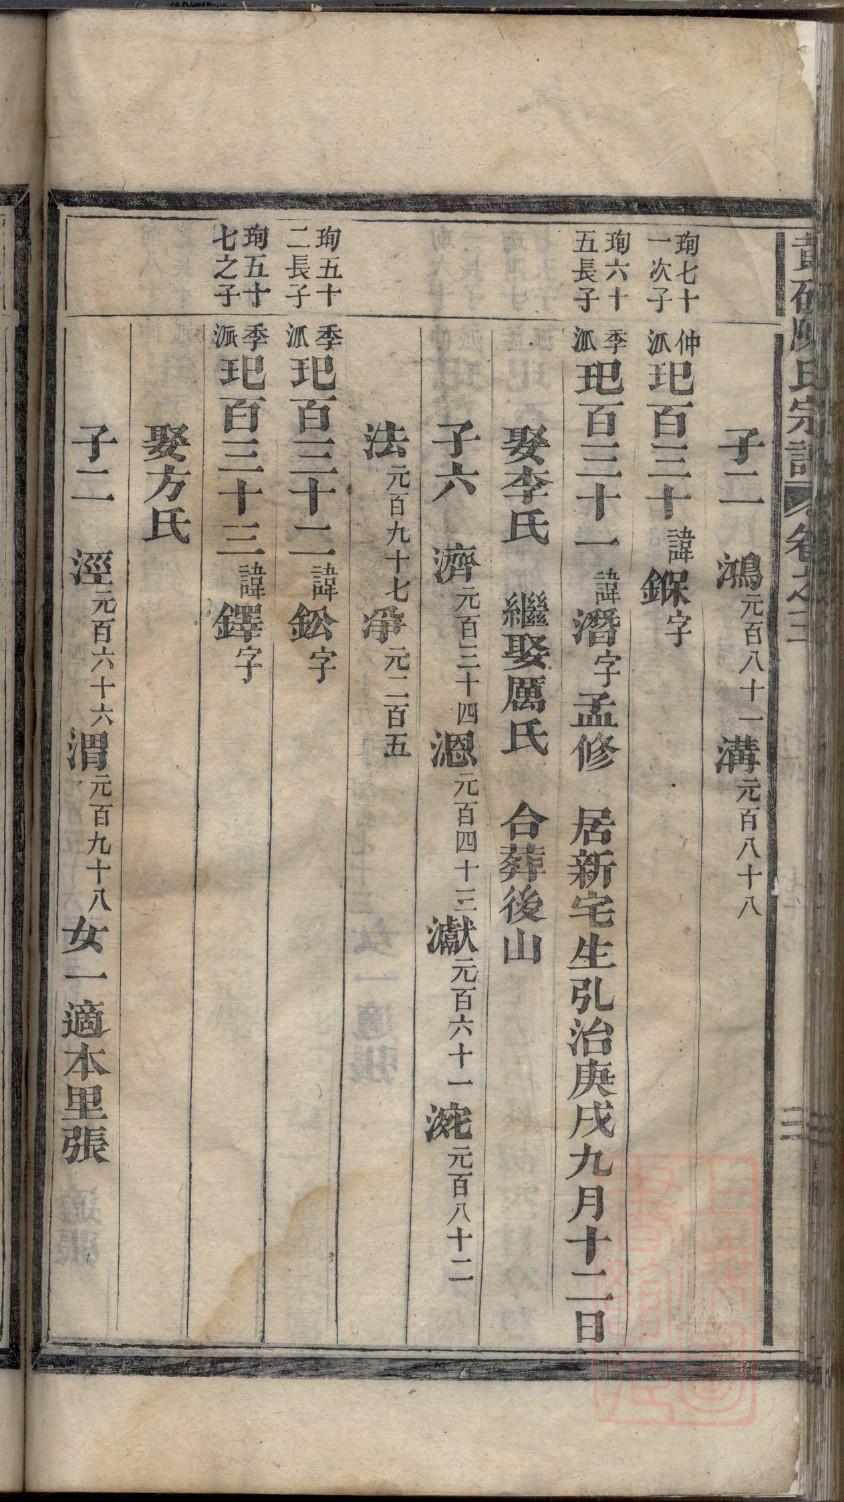 氏宗譜 卷之三
子二 鴻元百八十一溝元百八十八
珣七十一次子
仲派玘百三十諱鎨字
珣六十五長子
季派玘百三十一諱潛字孟修 居新宅生弘治庚戌九月十二日
娶李氏 繼娶厲氏 合葬後山
子六 濟元百三十四㴽元百四十三瀫元百六十一𣵠元百八十二
法元百九十七凈元二百五
珣五十二長子
季派玘百三十二諱鈆字
珣五十七之子
季派玘百三十三諱鐸字
娶方氏
子二 涇元百六十六渭元百九十八女一適本里張